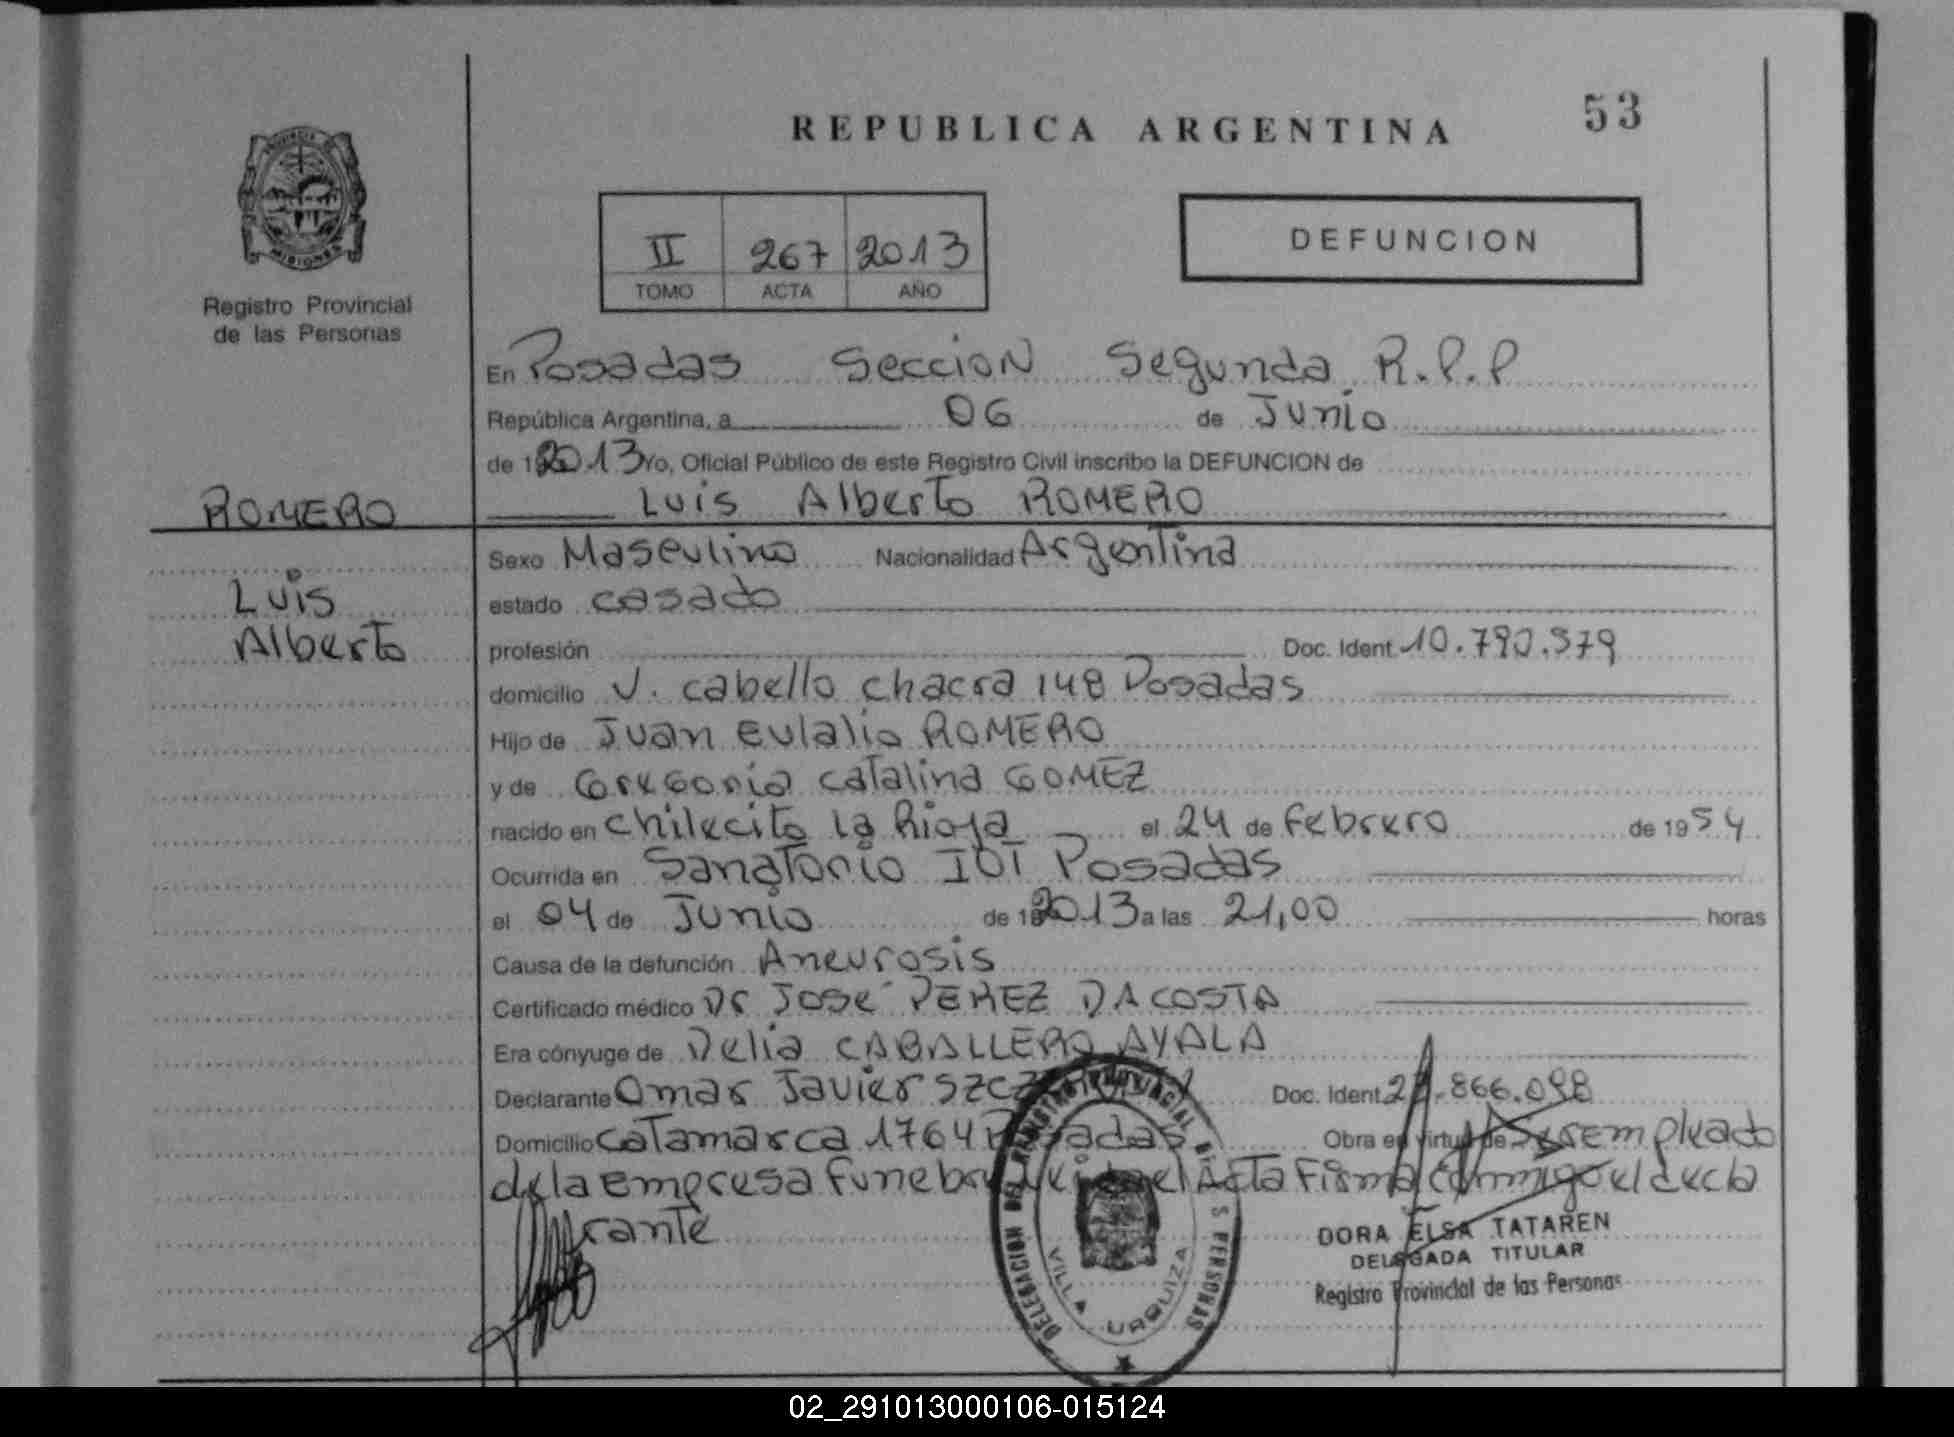 REPUBLICA ARGENTINA
53
PROVINCIA DE MISIONES
Registro Provincial
de las Personas
II 267 2013
TOMO ACTA AÑO
DEFUNCION
En Posadas Seccion Segunda R.P.P
República Argentina, a 06 de Junio
de 2013 Yo, Oficial Público de este Registro Civil inscribo la DEFUNCION de
ROMERO
Luis Alberto ROMERO
Luis
Alberto
Sexo Masculino Nacionalidad Argentina
estado casado
profesión Doc. Ident. 10.790.579
domicilio V. cabello chacra 148 Posadas
Hijo de Juan Eulalio ROMERO
y de Gregoria Catalina GOMEZ
nacido en Chilecito La Rioja el 24 de Febrero de 1954
Ocurrida en Sanatorio IOT Posadas
el 04 de Junio de 2013 a las 21,00 horas
Causa de la defunción Aneurosis
Certificado médico Dr Jose PEREZ DACOSTA
Era cónyuge de Delia CABALLERO AYALA
Declarante Omar Javier Doc. Ident. .866.098
Domicilio Catamarca 1764 Posadas Obra en virtud de Ser empleado
de la empresa Funebre Leida el Acta Firma conmigo el decla
rante
DELEGACION DEL REGISTRO PROVINCIAL DE LAS PERSONAS
VILLA URQUIZA
DORA ELSA TATAREN
DELEGADA TITULAR
Registro Provincial de las Personas
02_291013000106-015124